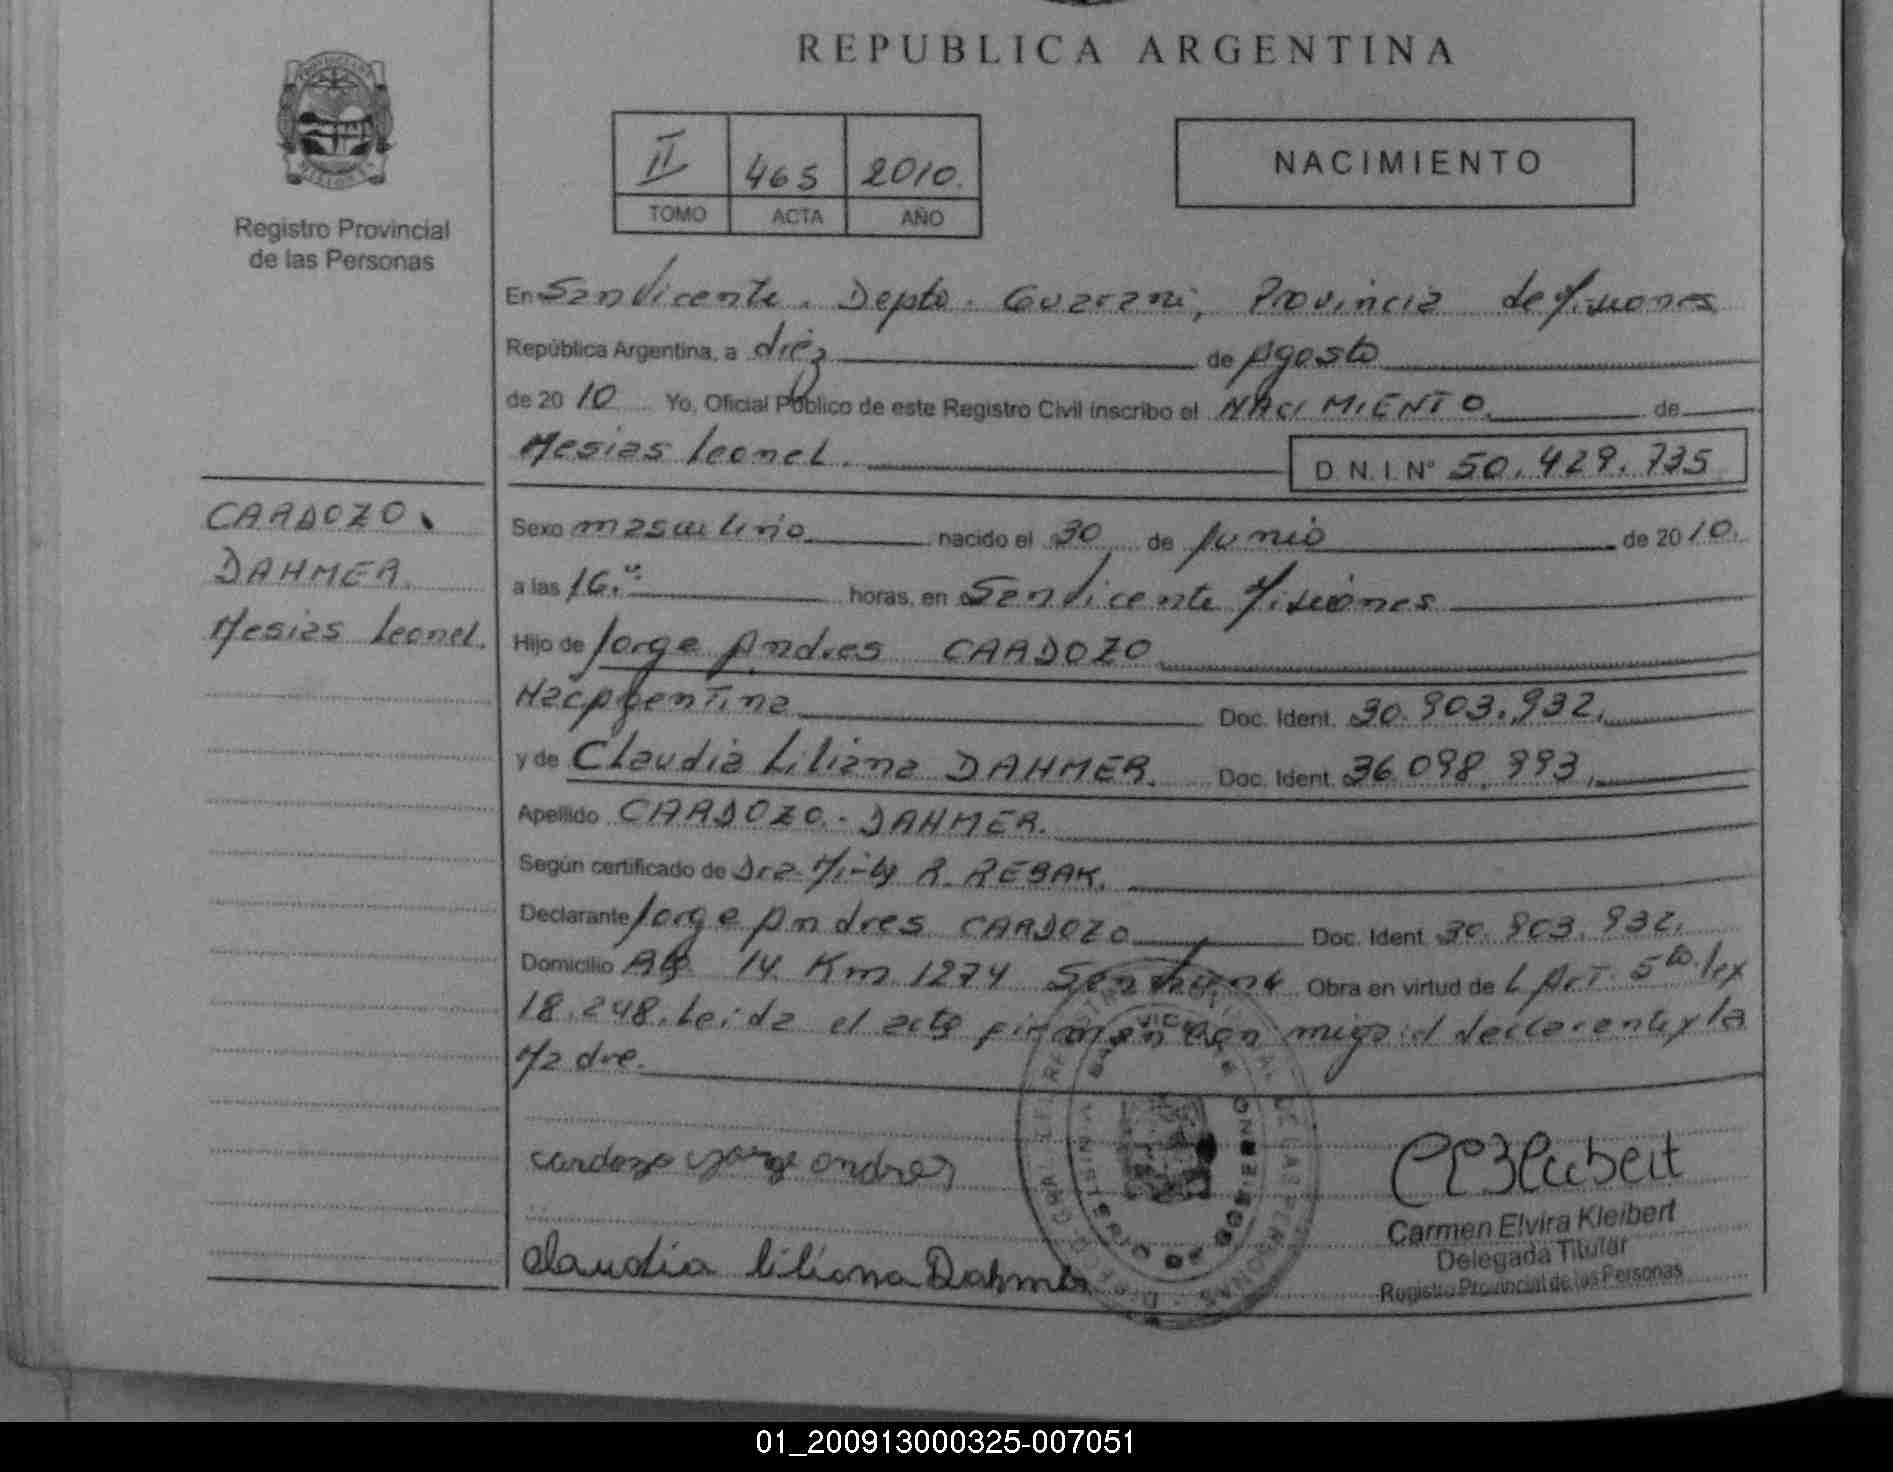 REPUBLICA ARGENTINA
Registro Provincial
de las Personas
II 465 2010.
TOMO ACTA AÑO
NACIMIENTO
En San Vicente. Depto. Guarani, Provincia de Misiones
República Argentina, a diez de Agosto
de 2010 Yo, Oficial Público de este Registro Civil inscribo el NACIMIENTO de
Mesias Leonel. D. N. I. N° 50.429.735
CARDOZO
DAHMER
Mesias Leonel.
Sexo masculino nacido el 30 de Junio de 2010.
a las 16. horas, en San Vicente Misiones
Hijo de Jorge Andres CARDOZO
Nac Argentina Doc. Ident. 30.903.932.
y de Claudia Liliana DAHMER. Doc. Ident. 36.098.993.
Apellido CARDOZO.- DAHMER.
Según certificado de Dra R. REBAK.
Declarante Jorge Andres CARDOZO Doc. Ident. 30.903.932.
Domicilio 14 Km 1274 San Vicente Obra en virtud de L Art. 5to. ley
18.248. Leida el acta firman con migo el declarante y la
Madre.
cardozo jorge andres
Claudia liliana Dahmer
Carmen Elvira Kleibert
Delegada Titular
Registro Provincial de las Personas
01_200913000325-007051